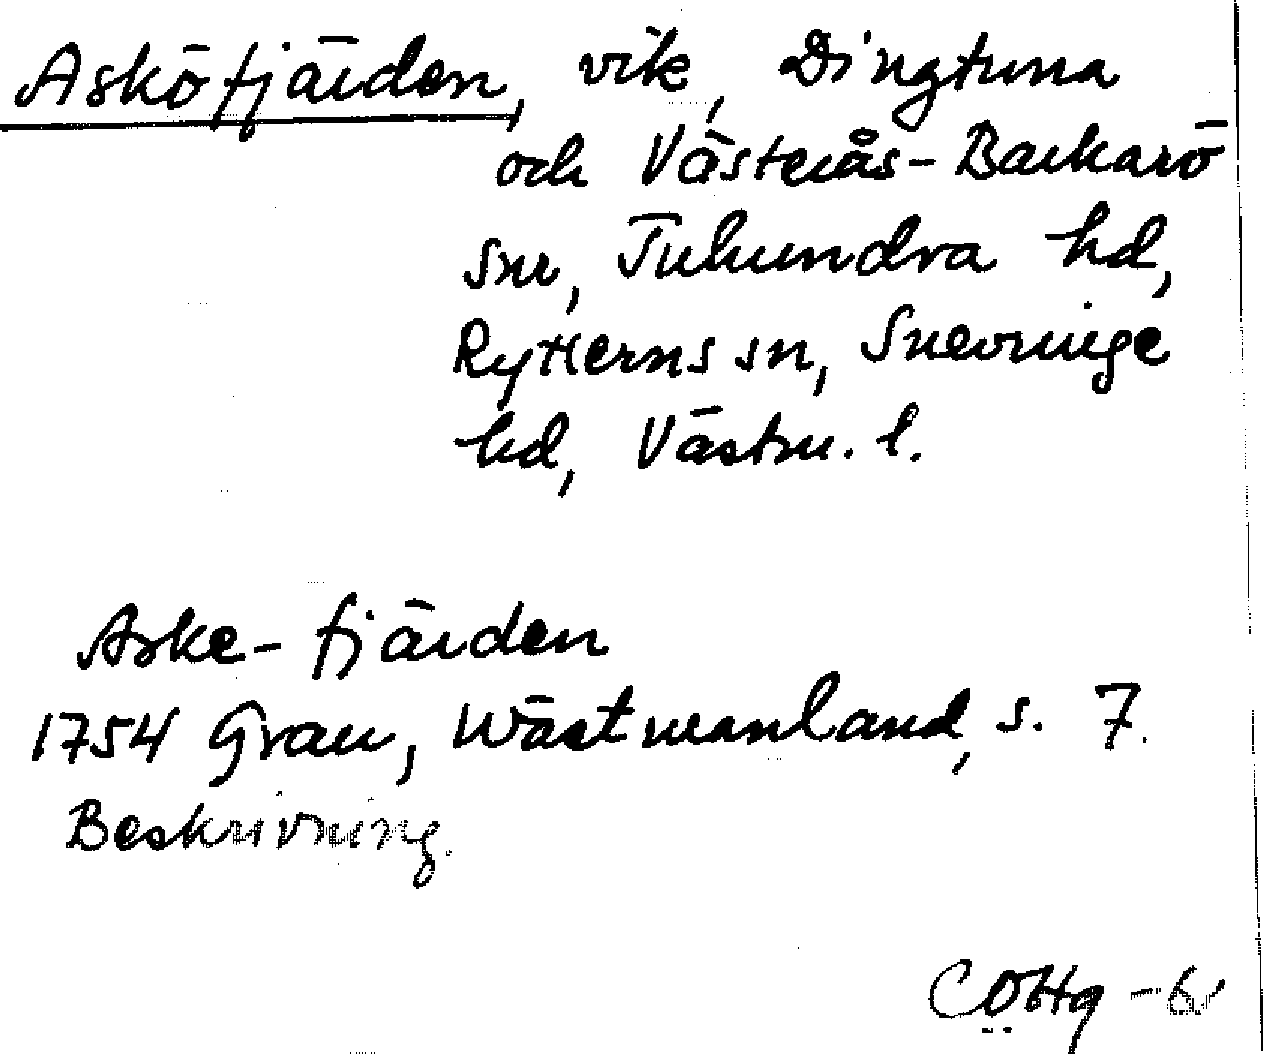 Asköfjärden, vik, Dingtuna
och Västerås-Barkarö
snr, Tuhundra hd,
Rytterns sn, Snevringe
hd, Västm. l.
Aske-fjärden
1754 Grau, Wästmanland, s. 7.
Beskrivning.